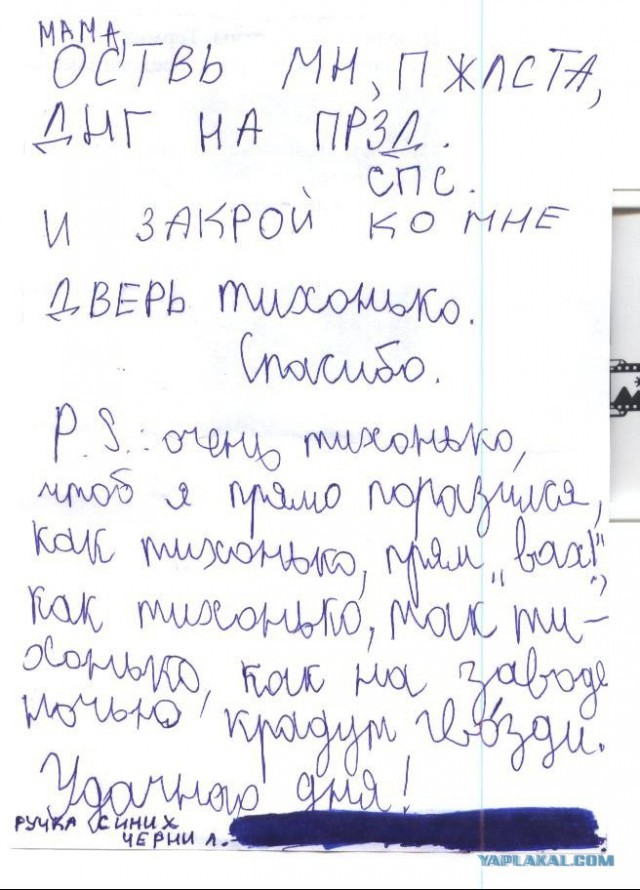 МАМА,
ОСТВЬ МН, ПЖЛСТА,
ДНГ НА ПРЗД.
СПС.
И ЗАКРОЙ КО МНЕ
ДВЕРЬ тихонько.
Спасибо.
P.S.: очень тихонько,
чтоб я прямо поразился,
как тихонько, прям „вах!",
как тихонько, так ти-
хонько, как на заводе
ночью крадут гвозди.
Удачного дня!
РУЧКА СИНИХ
ЧЕРНИЛ.-
YAPLAKAL.COM